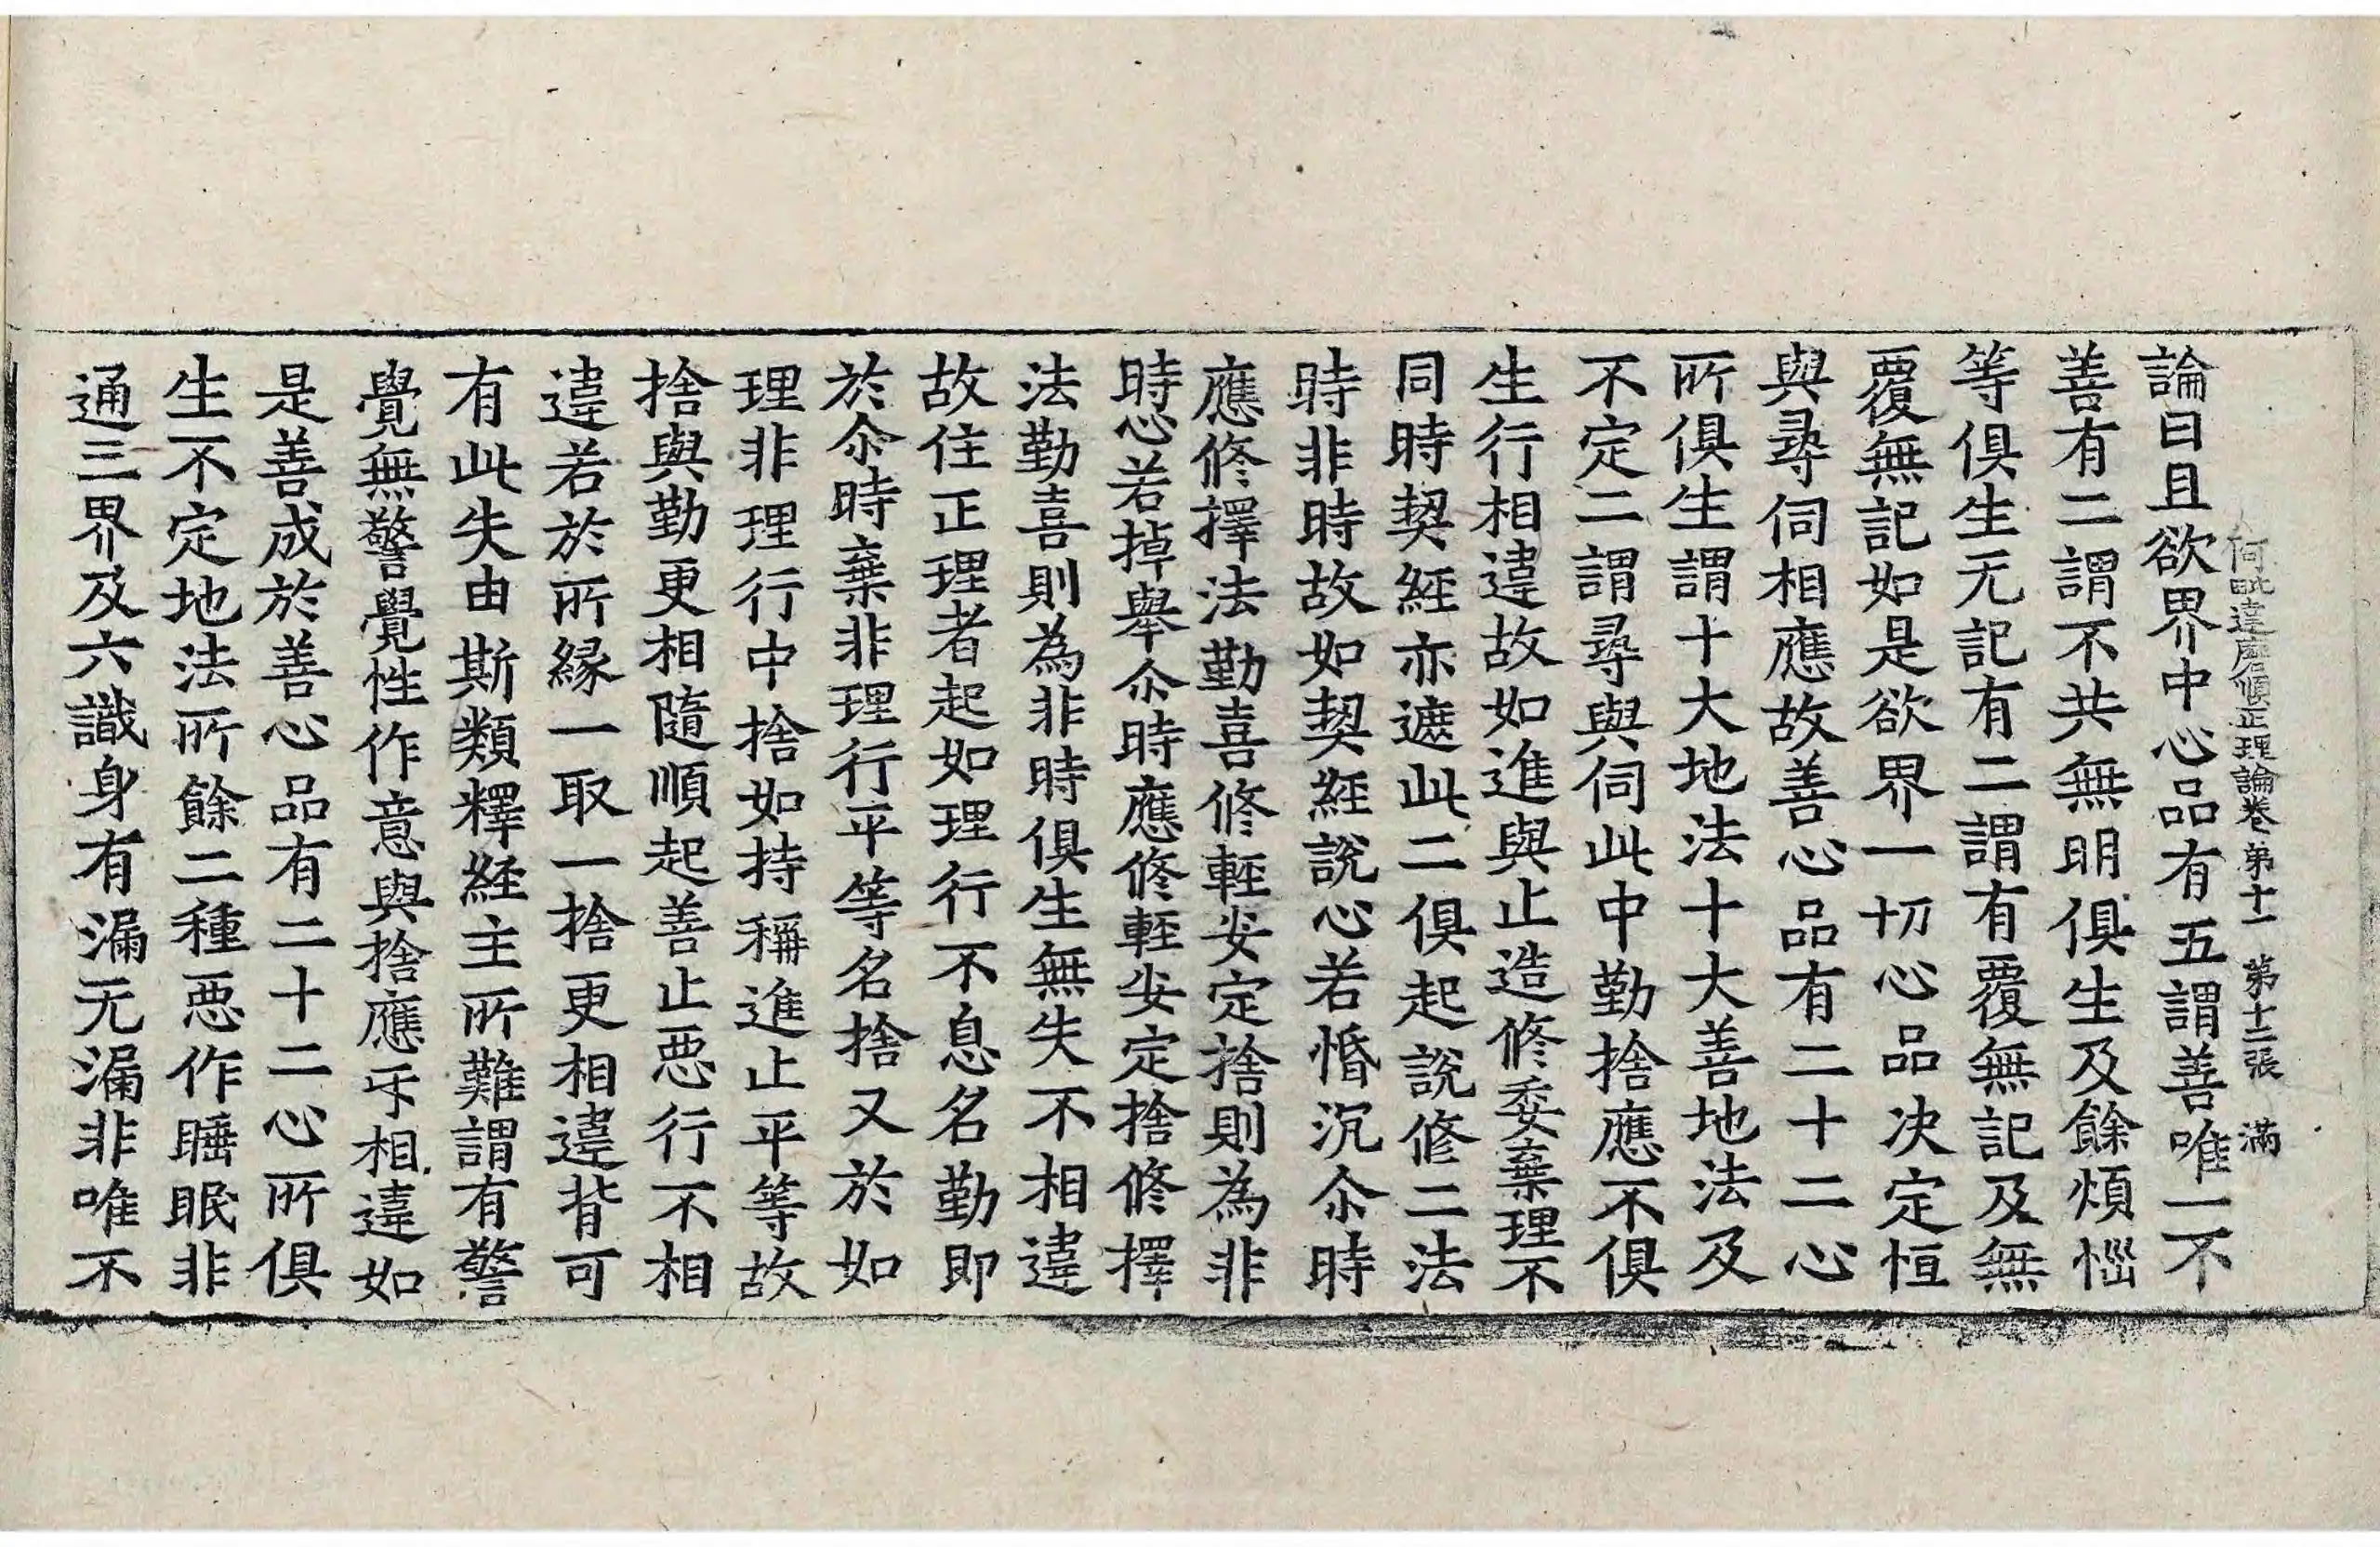 阿毗達磨順正理論卷第十一　第十二張　滿
論曰且欲界中心品有五謂善唯一不
善有二謂不共無明俱生及餘煩惱
等俱生无記有二謂有覆無記及無
覆無記如是欲界一切心品决定恒
與尋伺相應故善心品有二十二心
所俱生謂十大地法十大善地法及
不定二謂尋與伺此中勤捨應不俱
生行相違故如進與止造修委棄理不
同時契經亦遮此二俱起說修二法
時非時故如契經說心若惛沉尒時
應修擇法勤喜修輕安定捨則為非
時心若掉舉尒時應修輕安定捨修擇
法勤喜則為非時俱生無失不相違
故住正理者起如理行不息名勤即
於尒時棄非理行平等名捨又於如
理非理行中捨如持稱進止平等故
捨與勤更相隨順起善止惡行不相
違若於所緣一取一捨更相違背可
有此失由斯類釋經主所難謂有警
覺無警覺性作意與捨應乎相違如
是善成於善心品有二十二心所俱
生不定地法所餘二種惡作睡眠非
通三界及六識身有漏无漏非唯不